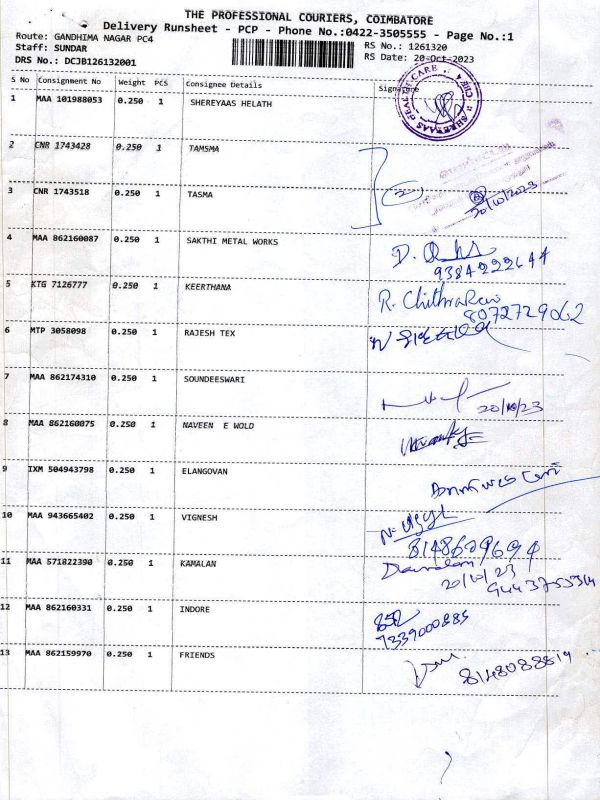 THE PROFESSIONAL COURIERS, COIMBATORE
Delivery Runsheet - PCP - Phone No.:0422-3505555 - Page No.:1
Route: GANDHIMA NAGAR PC4
RS No.: 1261320
Staff: SUNDAR
RS Date: 20-Oct-2023
DRS No.: DCJB126132001
S No Consignment No Weight PCS Consignee Details Signature
1 MAA 101988053 0.250 1 SHEREYAAS HELATH
2 CNR 1743428 0.250 1 TAMSMA
3 CNR 1743518 0.250 1 TASMA
20/10/2023
4 MAA 862160087 0.250 1 SAKTHI METAL WORKS
9384222644
5 KTG 7126777 0.250 1 KEERTHANA R. Chithra
8072729062
6 MTP 3058098 0.250 1 RAJESH TEX
7 MAA 862174310 0.250 1 SOUNDEESWARI
20/10/23
8 MAA 862160075 0.250 1 NAVEEN E WOLD
9 IXM 504943798 0.250 1 ELANGOVAN
10 MAA 943665402 0.250 1 VIGNESH
8148609694
11 MAA 571822390 0.250 1 KAMALAN
20/10/23
12 MAA 862160331 0.250 1 INDORE
9339000885
13 MAA 862159970 0.250 1 FRIENDS
8148088819